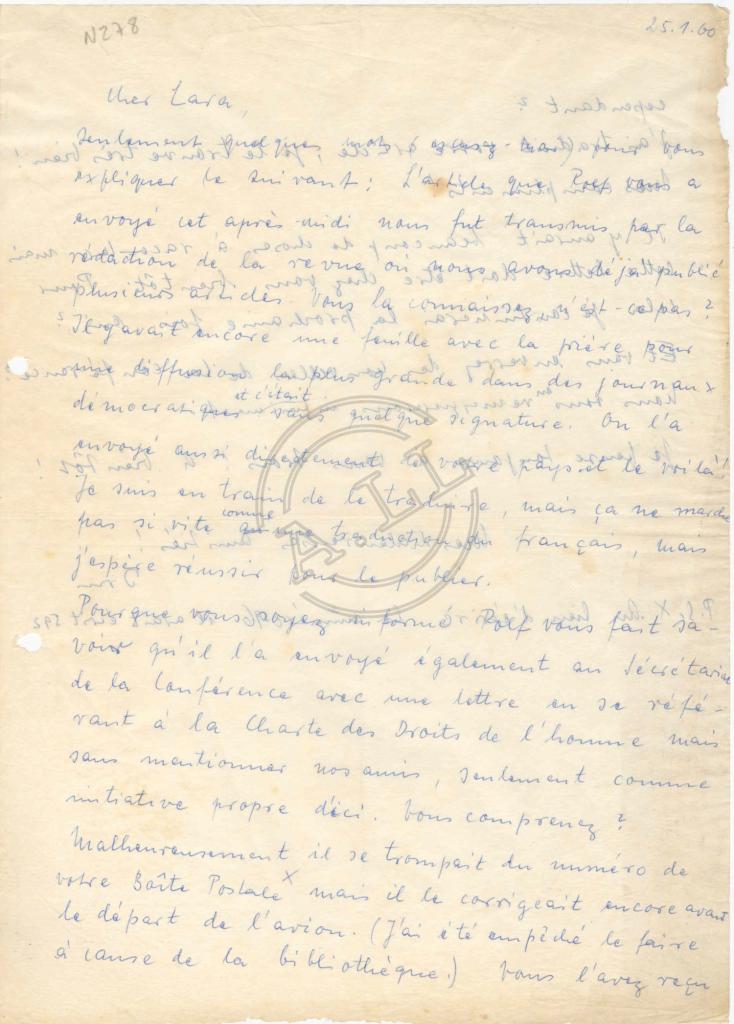 N278
25.1.60
Cher Lara,
seulement quelques mots (excusez-moi) pour vous
expliquer le suivant: L'article que Rolf vous a
envoyé cet après-midi nous fut transmis par la
rédaction de la revue où nous avons déjà publié
plusieurs articles. Vous la connaissez n'est-ce pas?
Il y avait encore une feuille avec la prière pour
une diffusion la plus grande dans des journaux
démocratiques et c'était sans quelque signature. On l'a
envoyé aussi directement de votre pays et le voilà!
Je suis en train de le traduire, mais ça ne marche
pas si vite comme une traduction du français, mais
j'espère réussir pour le publier.
Pour que vous soyez informé Rolf vous fait sa-
voir qu'il l'a envoyé également au Sécrétariat
de la Conférence avec une lettre en se réfé-
rant à la Charte des Droits de l'homme mais
sans mentionner nos amis, seulement comme
initiative propre d'ici. Vous comprenez?
Malheureusement il se trompait du numéro de
votre Boîte Postale x mais il le corrigeait encore avant
le départ de l'avion. (J'ai été empêché le faire
à cause de la bibliothèque.) Vous l'avez reçu
ALLI